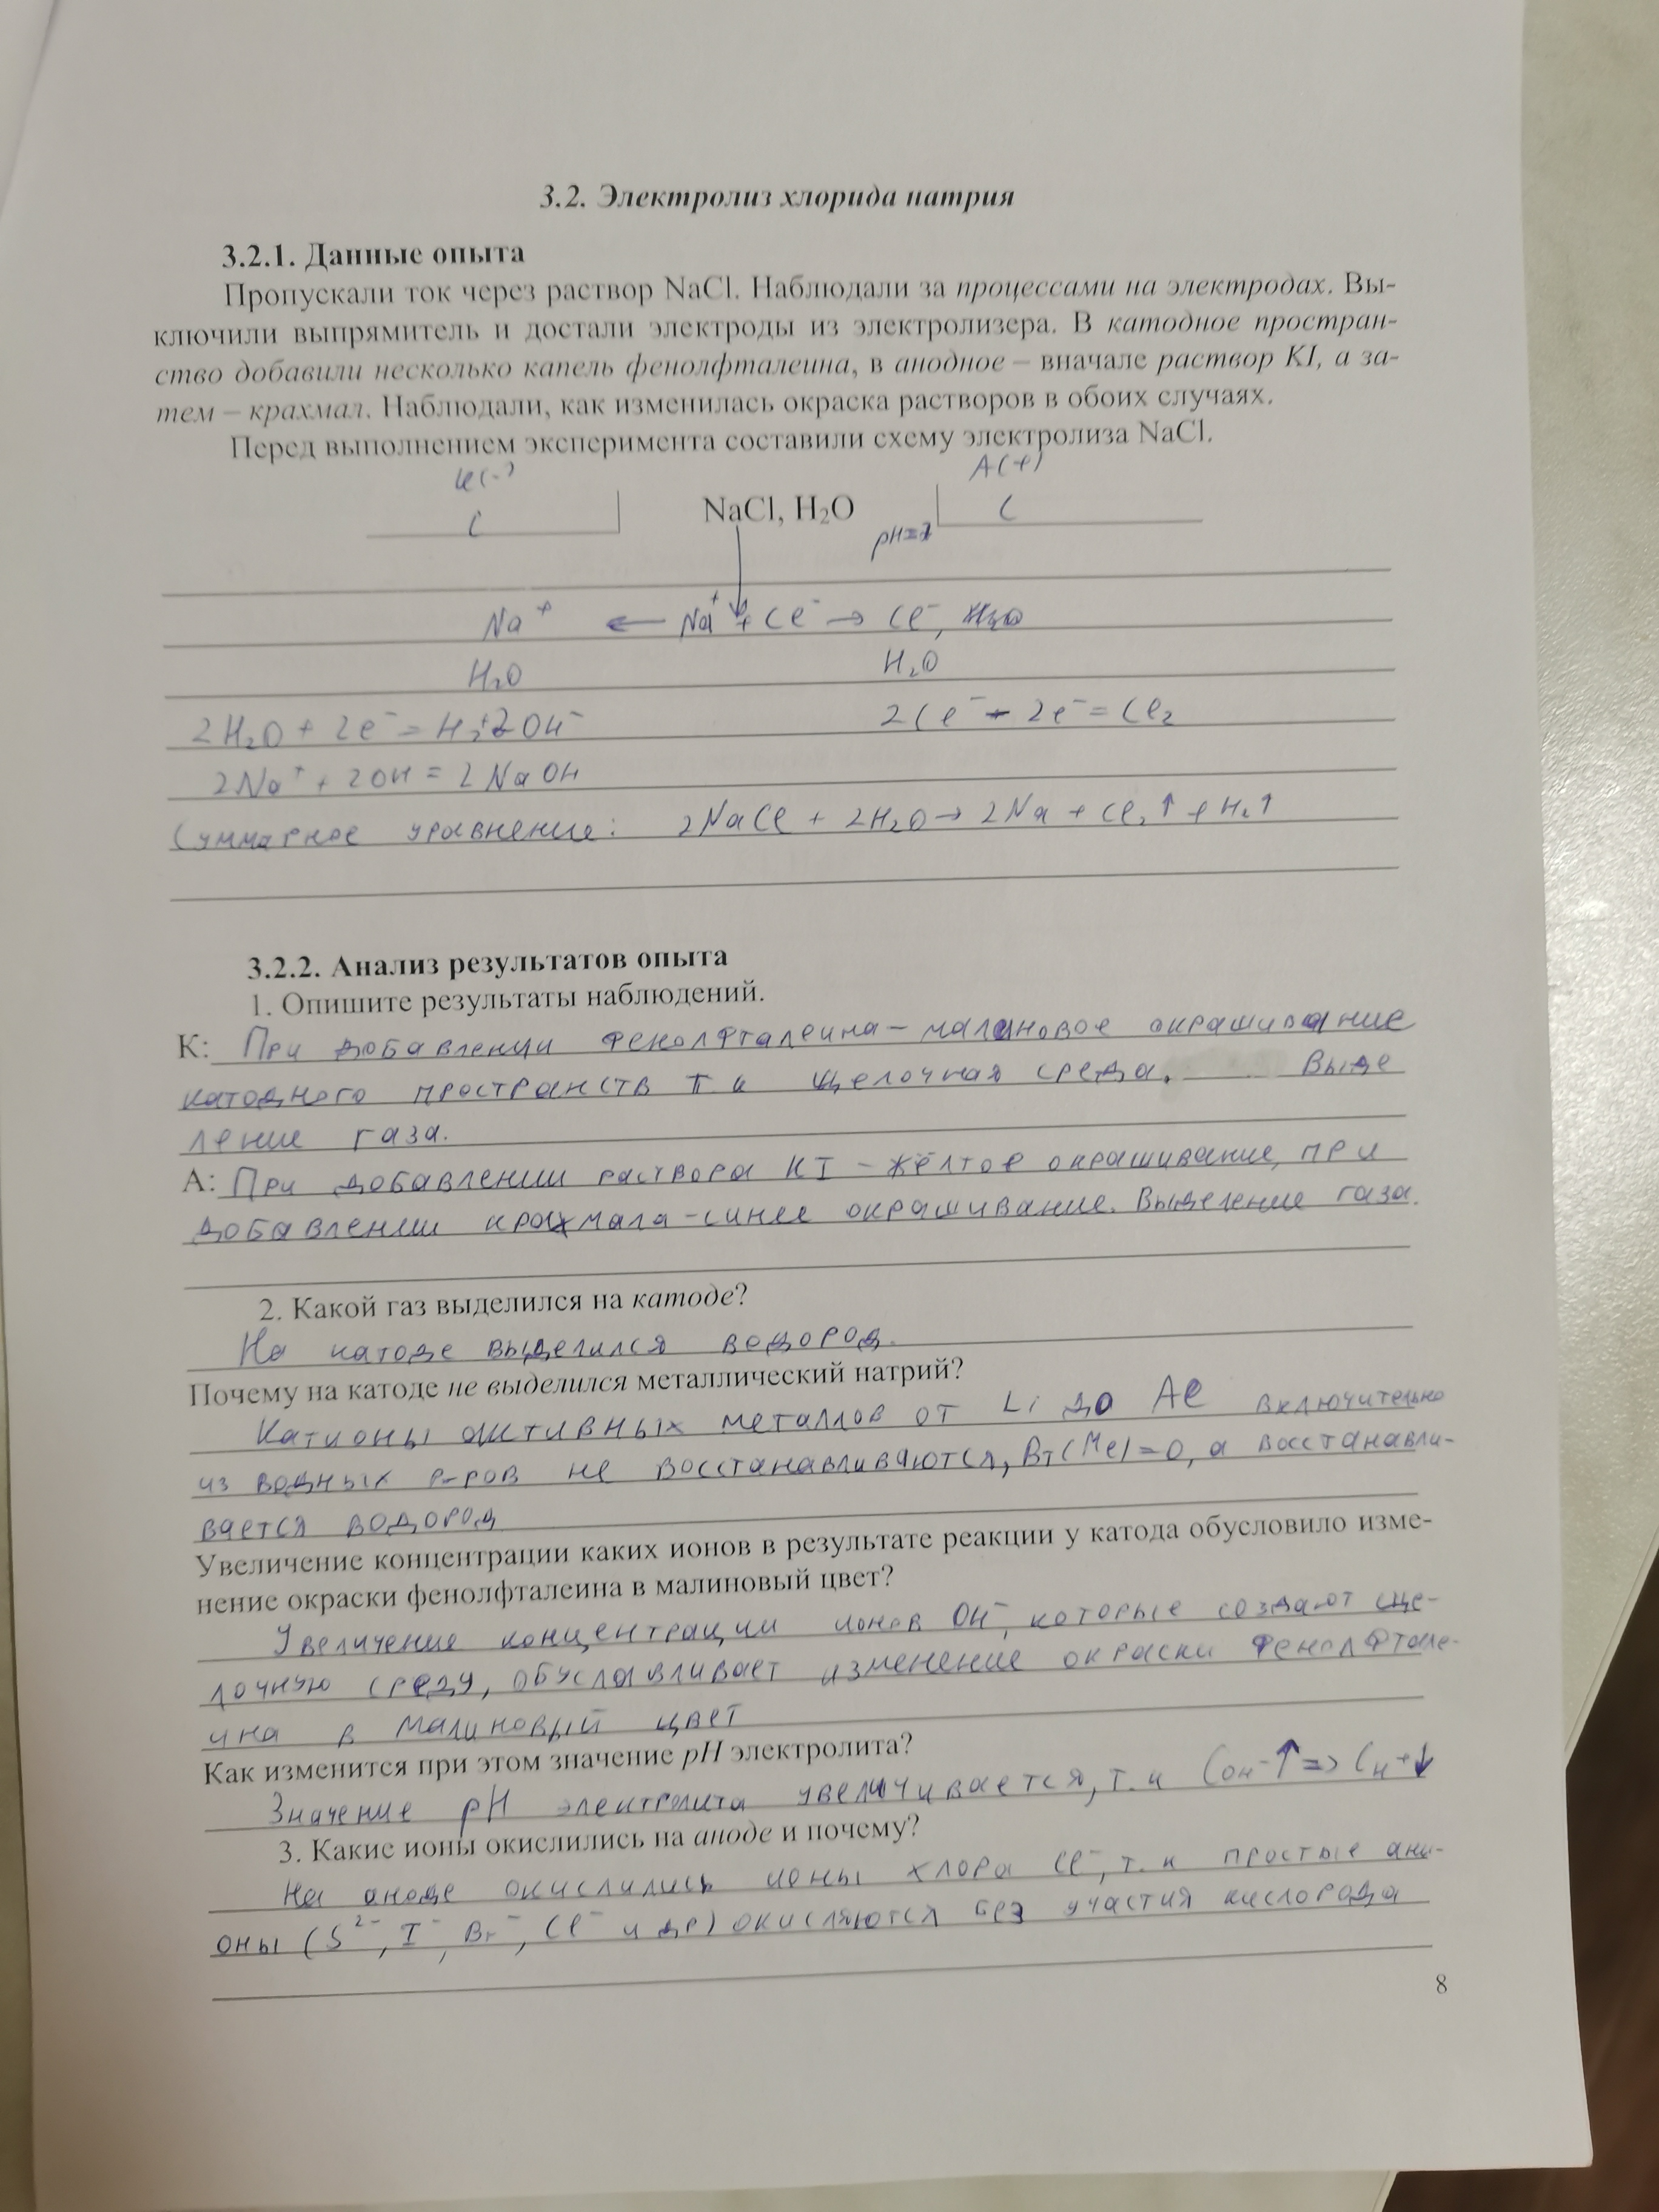 3.2. Электролиз хлорида натрия
3.2.1. Данные опыта
Пропускали ток через раствор NaCl. Наблюдали за процессами на электродах. Вы-
ключили выпрямитель и достали электроды из электролизера. В катодное простран-
ство добавили несколько капель фенолфталеина, в анодное – вначале раствор KI, а за-
тем – крахмал. Наблюдали, как изменилась окраска растворов в обоих случаях.
Перед выполнением эксперимента составили схему электролиза NaCl.
К(-) А(+)
C NaCl, H₂O C
pH=7
Na⁺ ← Na⁺ + Cl⁻ → Cl⁻, H₂O
H₂O H₂O
2H₂O + 2e⁻ = H₂+2OH⁻ 2Cl⁻ - 2e⁻ = Cl₂
2Na⁺ + 2OH = 2NaOH
Суммарное уравнение: 2NaCl + 2H₂O → 2Na + Cl₂↑ + H₂↑
3.2.2. Анализ результатов опыта
1. Опишите результаты наблюдений.
К: При добавлении фенолфталеина – малиновое окрашивание
катодного пространств т к щелочная среда. Выде
ление газа.
А: При добавлении раствора KI – жёлтое окрашивание, при
добавлении крахмала – синее окрашивание. Выделение газа.
2. Какой газ выделился на катоде?
На катоде выделился водород.
Почему на катоде не выделился металлический натрий?
Катионы активных металлов от Li до Al включительно
из водных р-ров не восстанавливаются, Вт(Me)=0, а восстанавли-
вается водород
Увеличение концентрации каких ионов в результате реакции у катода обусловило изме-
нение окраски фенолфталеина в малиновый цвет?
Увеличение концентрации ионов OH⁻, которые создают ще-
лочную среду, обуславливает изменение окраски фенолфтале-
ина в малиновый цвет
Как изменится при этом значение pH электролита?
Значение pH электролита увеличивается, т.к C OH⁻↑ => C H⁺↓
3. Какие ионы окислились на аноде и почему?
На аноде окислились ионы хлора Cl⁻, т.к простые ани-
оны (S²⁻, I⁻, Br⁻, Cl⁻ и др) окисляются без участия кислорода
8